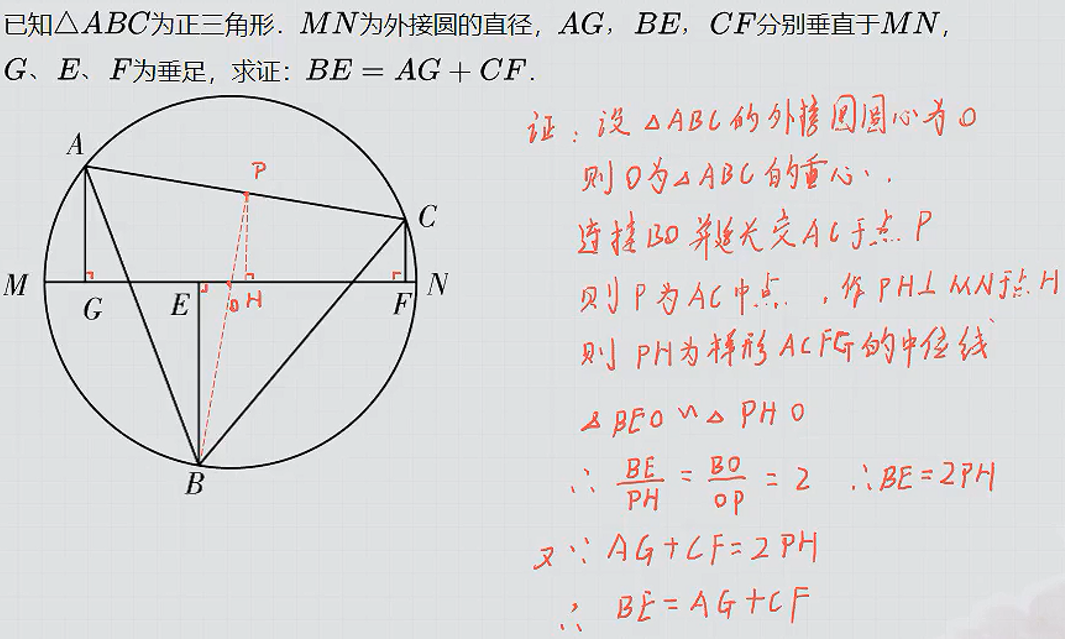 已知△ABC为正三角形. MN为外接圆的直径, AG, BE, CF分别垂直于MN,
G、E、F为垂足, 求证: BE = AG + CF.
A
P
C
M
G
E
O
H
F
N
B
证: 设△ABC的外接圆圆心为O
则O为△ABC的重心.
连接BO并延长交AC于点P
则P为AC中点, 作PH⊥MN于点H
则PH为梯形ACFG的中位线
△BEO∽△PHO
∴ BE/PH = BO/OP = 2 ∴BE=2PH
又∵ AG+CF=2PH
∴ BE=AG+CF